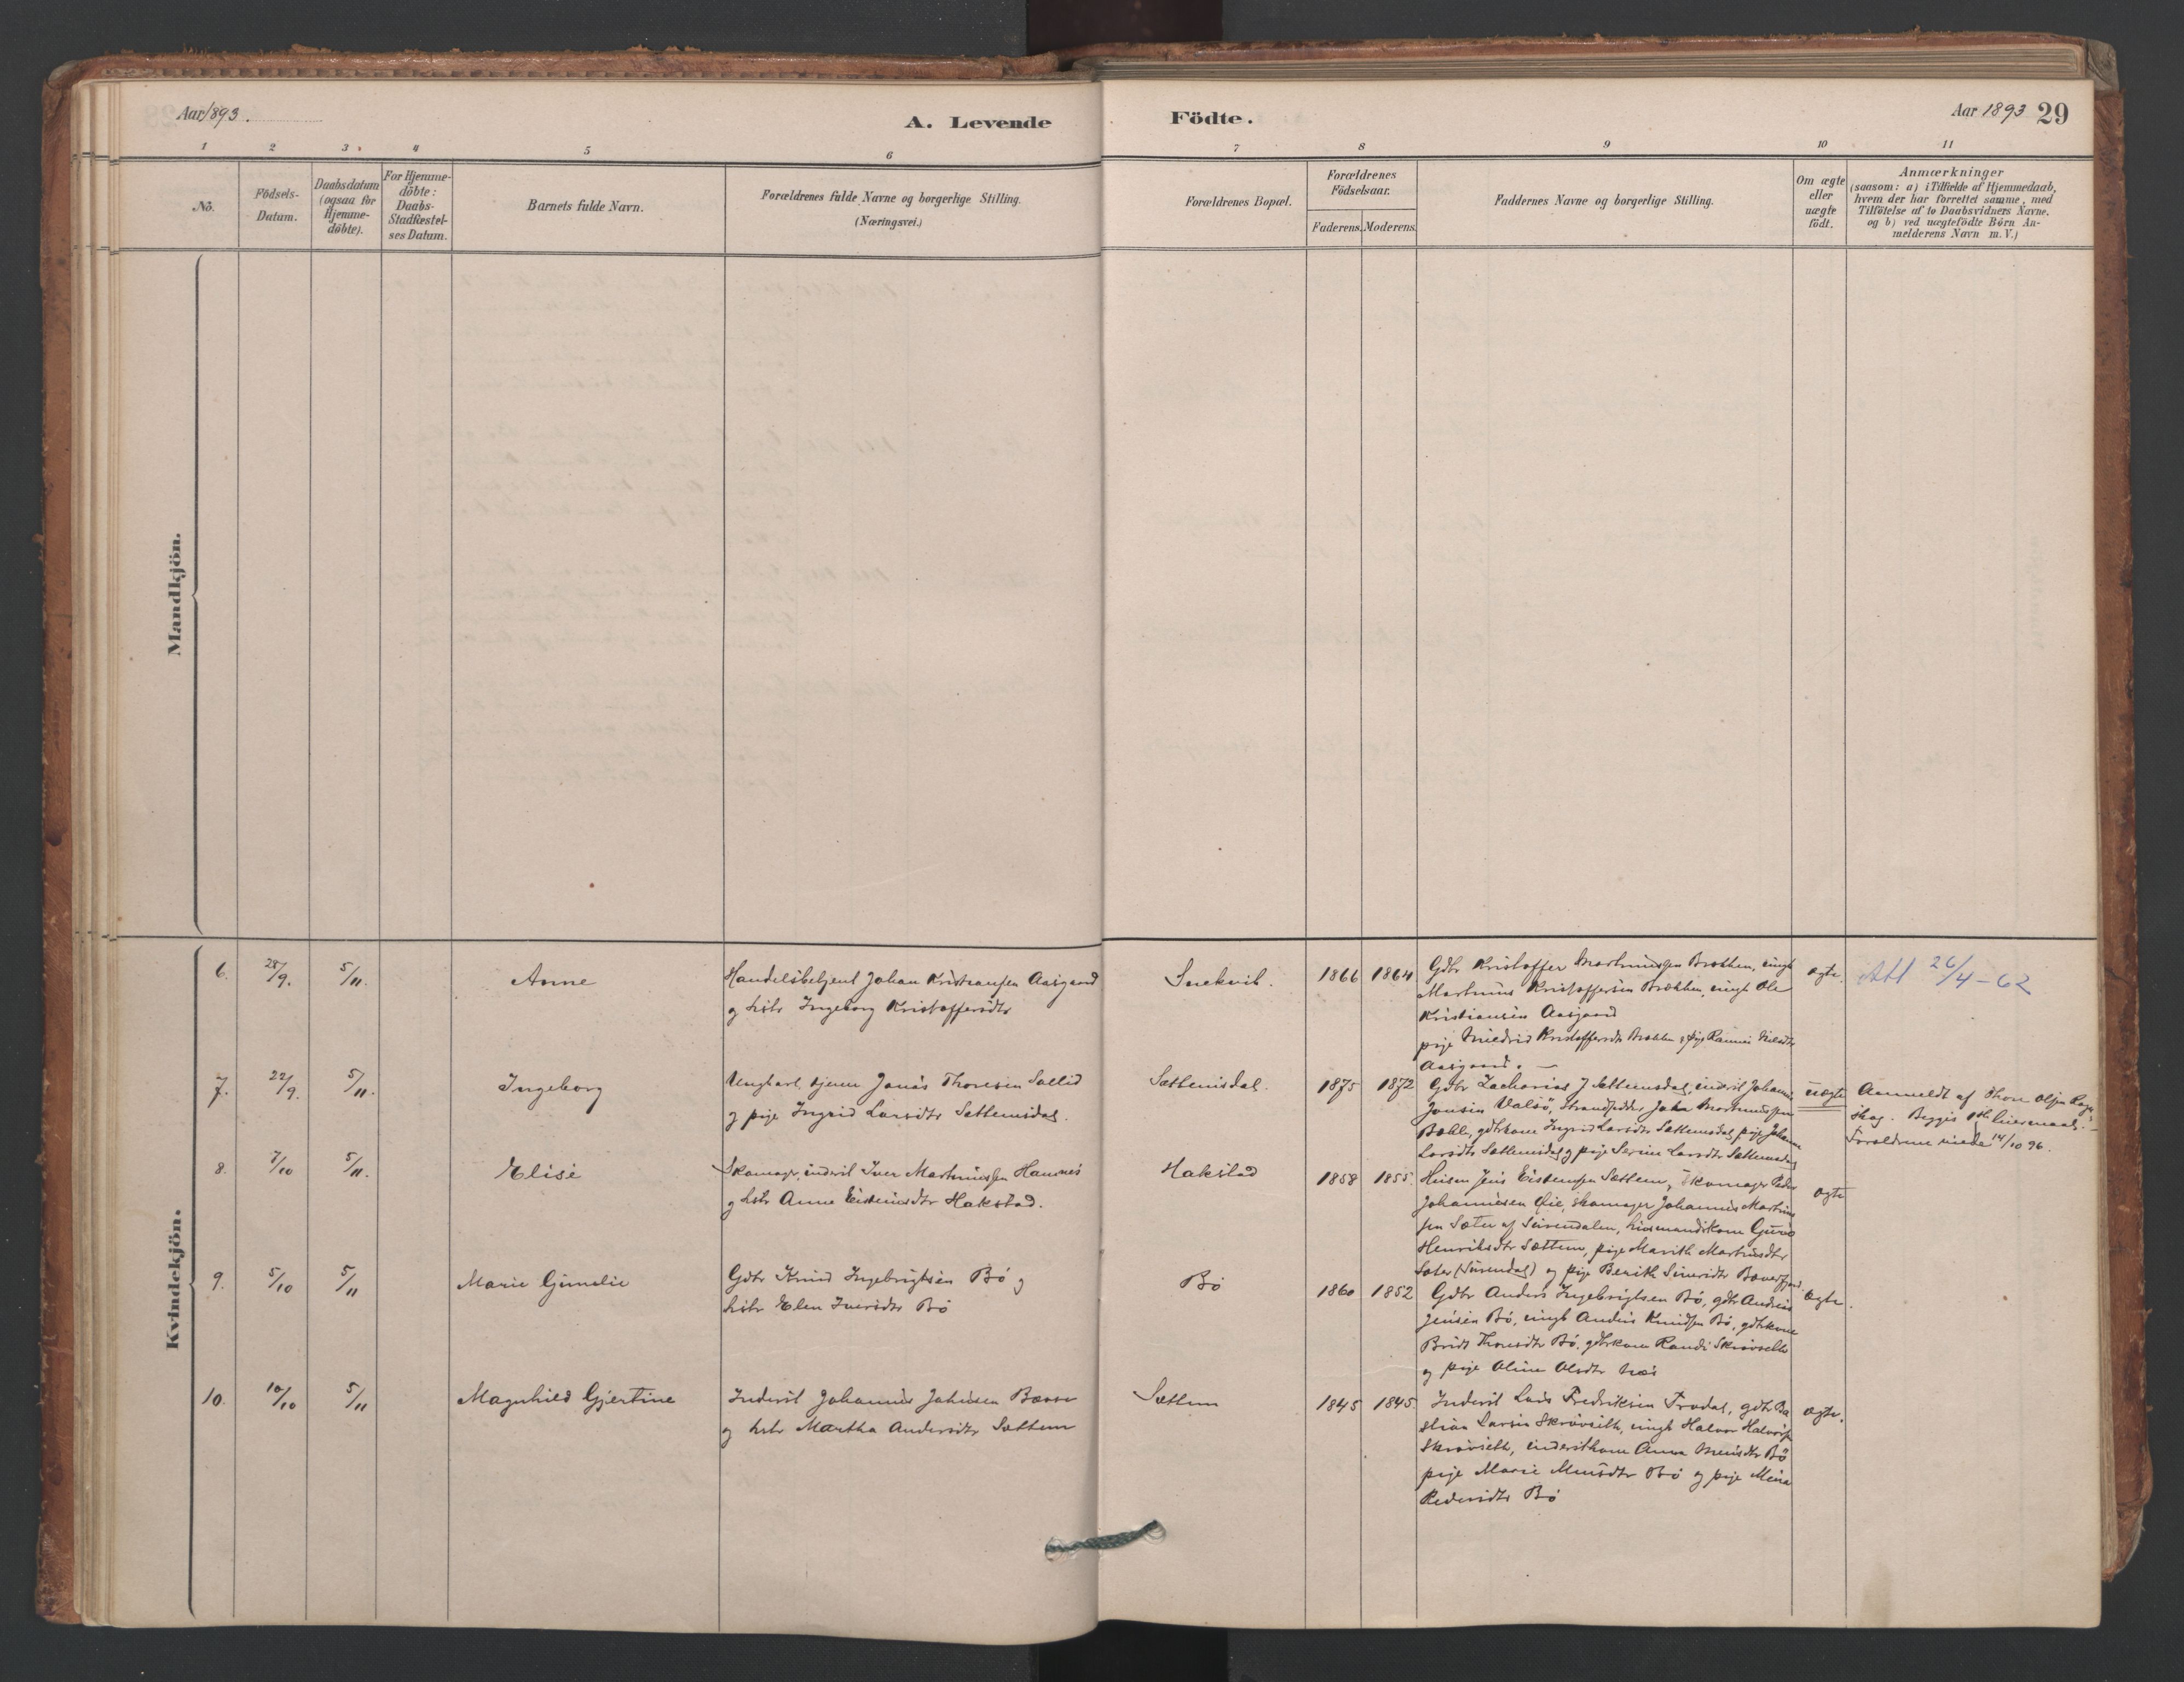 Aar 1893.
A. Levende
Födte.
Aar 1893 29
1 2 3 4 5 6 7 8 9 10 11
No.
Födsels-Datum.
Daabsdatum (ogsaa for Hjemme-döbte).
For Hjemme-döbte: Daabs-Stadfæstel-ses Datum.
Barnets fulde Navn.
Forældrenes fulde Navne og borgerlige Stilling.
(Næringsvei.)
Forældrenes Bopæl.
Forældrenes Födselsaar.
Faderens. Moderens.
Faddernes Navne og borgerlige Stilling.
Om ægte eller uægte födt.
Anmærkninger
(saasom: a) i Tilfælde af Hjemmedaab,
hvem der har forrettet samme, med
Tilföielse af to Daabsvidners Navne,
og b) ved uægtefödte Börn An-
melderens Navn m. V.)
Mandkjön.
Kvindekjön.
6. 28/9. 5/11. Anne
Handelsbetjent Johan Kristiansen Aasgaard
og hstr Ingeborg Kristoffersdtr
Snekvik. 1866 1864
Gdbr Kristoffer Martinussen Brækken, ungk
Martinus Kristoffersen Brækken, ungk Ole
Kristiansen Aasgaard
pige Kristoffersdtr Brækken & pige
Aasgaard. —
ægte. Att 26/4-62
7. 22/9. 5/11. Ingeborg
Ungkarl, tjener Jonas Thoresen Sollid
og pige Ingrid Larsdtr Settemsdal.
Settemsdal. 1875 1872
Gdbr Zacharias J Settemsdal, inderst Johannes
Jonsen Valsö, Strandsidder John Martinussen
Bøhle, gdbrkone Ingrid Larsdtr Settemsdal, pige Johanne
Larsdtr Settemsdal og pige Serine Larsdtr Settemsdal
uægte
Anmeldt af Thore Olsen
skog. Begges 1ste Leiermaal. —
Forældrene viede 14/10 96.
8. 7/10 5/11. Elise
Skomager, inderst Iver Martinussen Hamnes
og hstr Anne Eistensdtr Hakstad.
Hakstad 1858 1855.
Husm Jens Eistensen Settem, Skomager Peder
Johannesen Øie, skomager Johannes Martinus
sen Sæter af Surendalen, husmandskone Guro
Henriksdtr Settem, pige Marith Martinusdtr
Sæter (Surendal) og pige Berith Siversdtr Bæverfjord.
ægte
9. 5/10 5/11 Marie Gjunelie
Gdbr Knud Ingebrigtsen Bö og
hstr Elen Iversdtr Bö
Bö 1860 1852
Gdbr Anders Ingebrigtsen Bö, gdbr Andreas
Jensen Bö, ungk Anders Knudsen Bö, gdbrkone
Brit Thoresdtr Bö, gdbrkone Randi Skrövseth
og pige Oline Olsdtr Næs
ægte.
10. 10/10 5/11 Magnhild Gjertine
Inderst Johannes Johnsen Bævre
og hstr Martha Andersdtr Settem
Settem 1845 1845
Inderst Lars Fredriksen Trædal, gdbr Ba
stian Larsen Skrövseth, ungk Halvor Halvorsen
Skrövseth, inderstkone Anne Monsdtr Bö
pige Marie Monsdtr Bö og pige
Pedersdtr Bö
ægte.